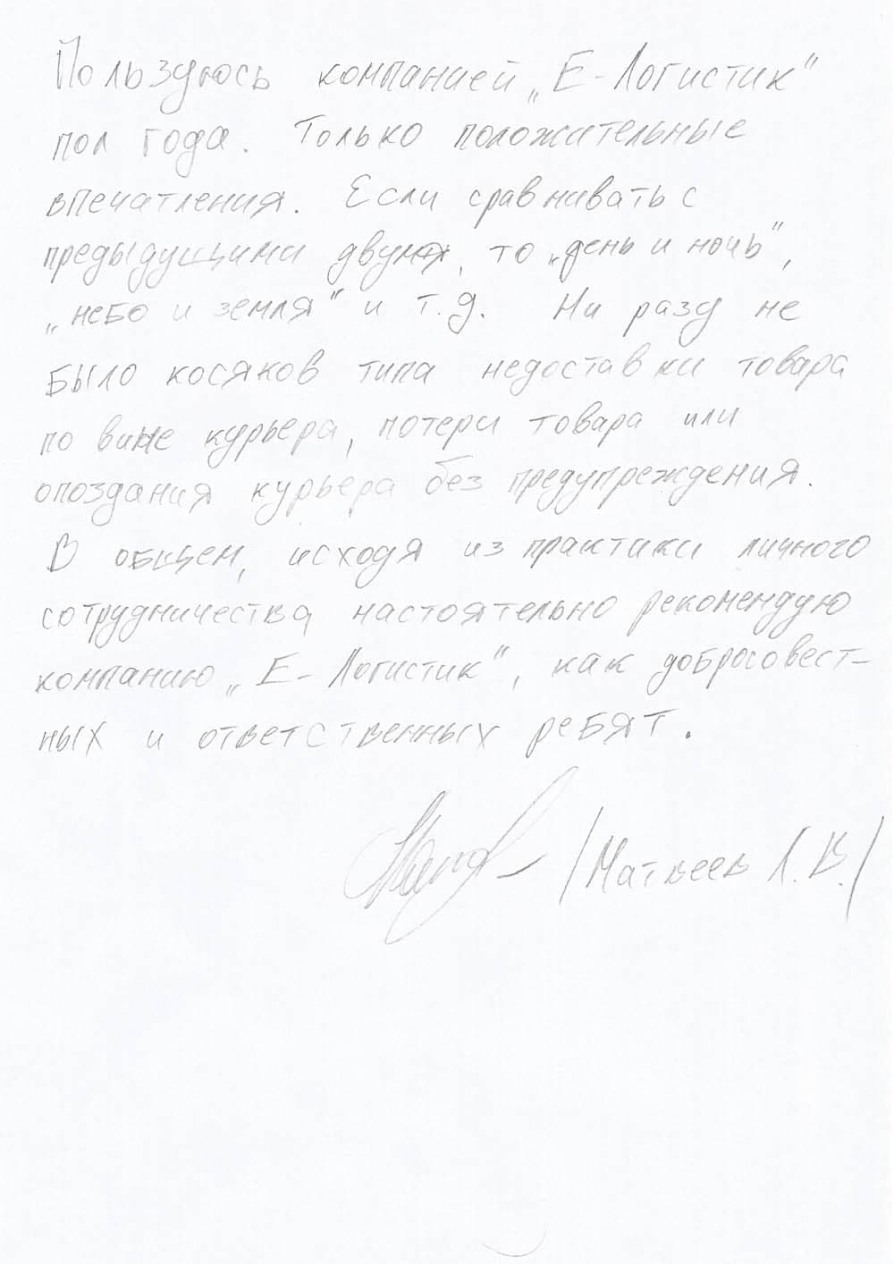 Пользуюсь компанией „Е-Логистик"
пол года. Только положительные
впечатления. Если сравнивать с
предыдущими двумя, то „день и ночь",
„небо и земля" и т.д. Ни разу не
было косяков типа недоставки товара
по вине курьера, потери товара или
опоздания курьера без предупреждения.
В общем, исходя из практики личного
сотрудничества настоятельно рекомендую
компанию „Е-Логистик", как добросовест-
ных и ответственных ребят.
/Матвеев Л.В./